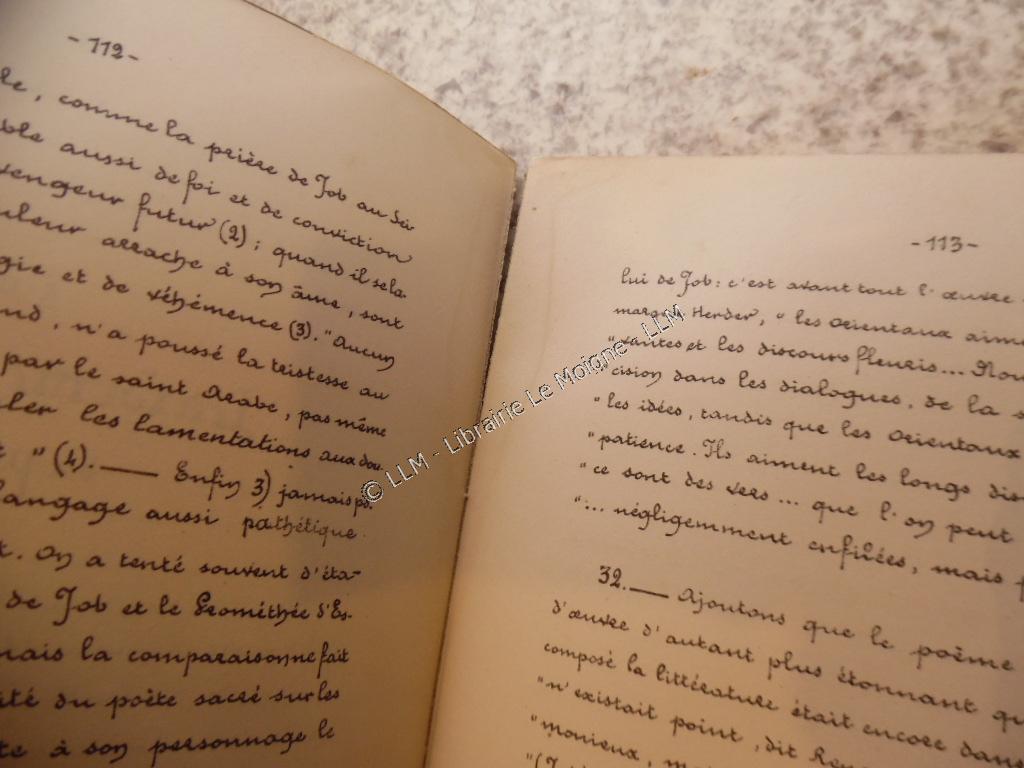 -112-
le, comme la prière de Job au Sei-
ble aussi de foi et de conviction
vengeur futur (2); quand il se la-
uleur arrache à son âme, sont
gie et de véhémence (3). "Aucun
nd, n'a poussé la tristesse au
par le saint Arabe, pas même
ler les lamentations aux dou-
" (4). — Enfin 3) jamais po-
langage aussi pathétique.
t. On a tenté souvent d'éta-
de Job et le Prométhée d'Es-
mais la comparaison ne fait
ité du poète sacré sur les
te à son personnage le
-113-
lui de Job: c'est avant tout l'œuvre
marque Herder, "les Orientaux aime
"rantes et les discours fleuris... Nou
"cision dans les dialogues, de la s
"les idées, tandis que les Orientaux
"patience. Ils aiment les longs dis
"ce sont des vers... que l'on peut
"... négligemment enfilées, mais p
32. — Ajoutons que le poème
d'œuvre d'autant plus étonnant qu
composé la littérature était encore dans
"n'existait point, dit Ren
"monieux, m
© LLM - Librairie Le Moigne - LLM